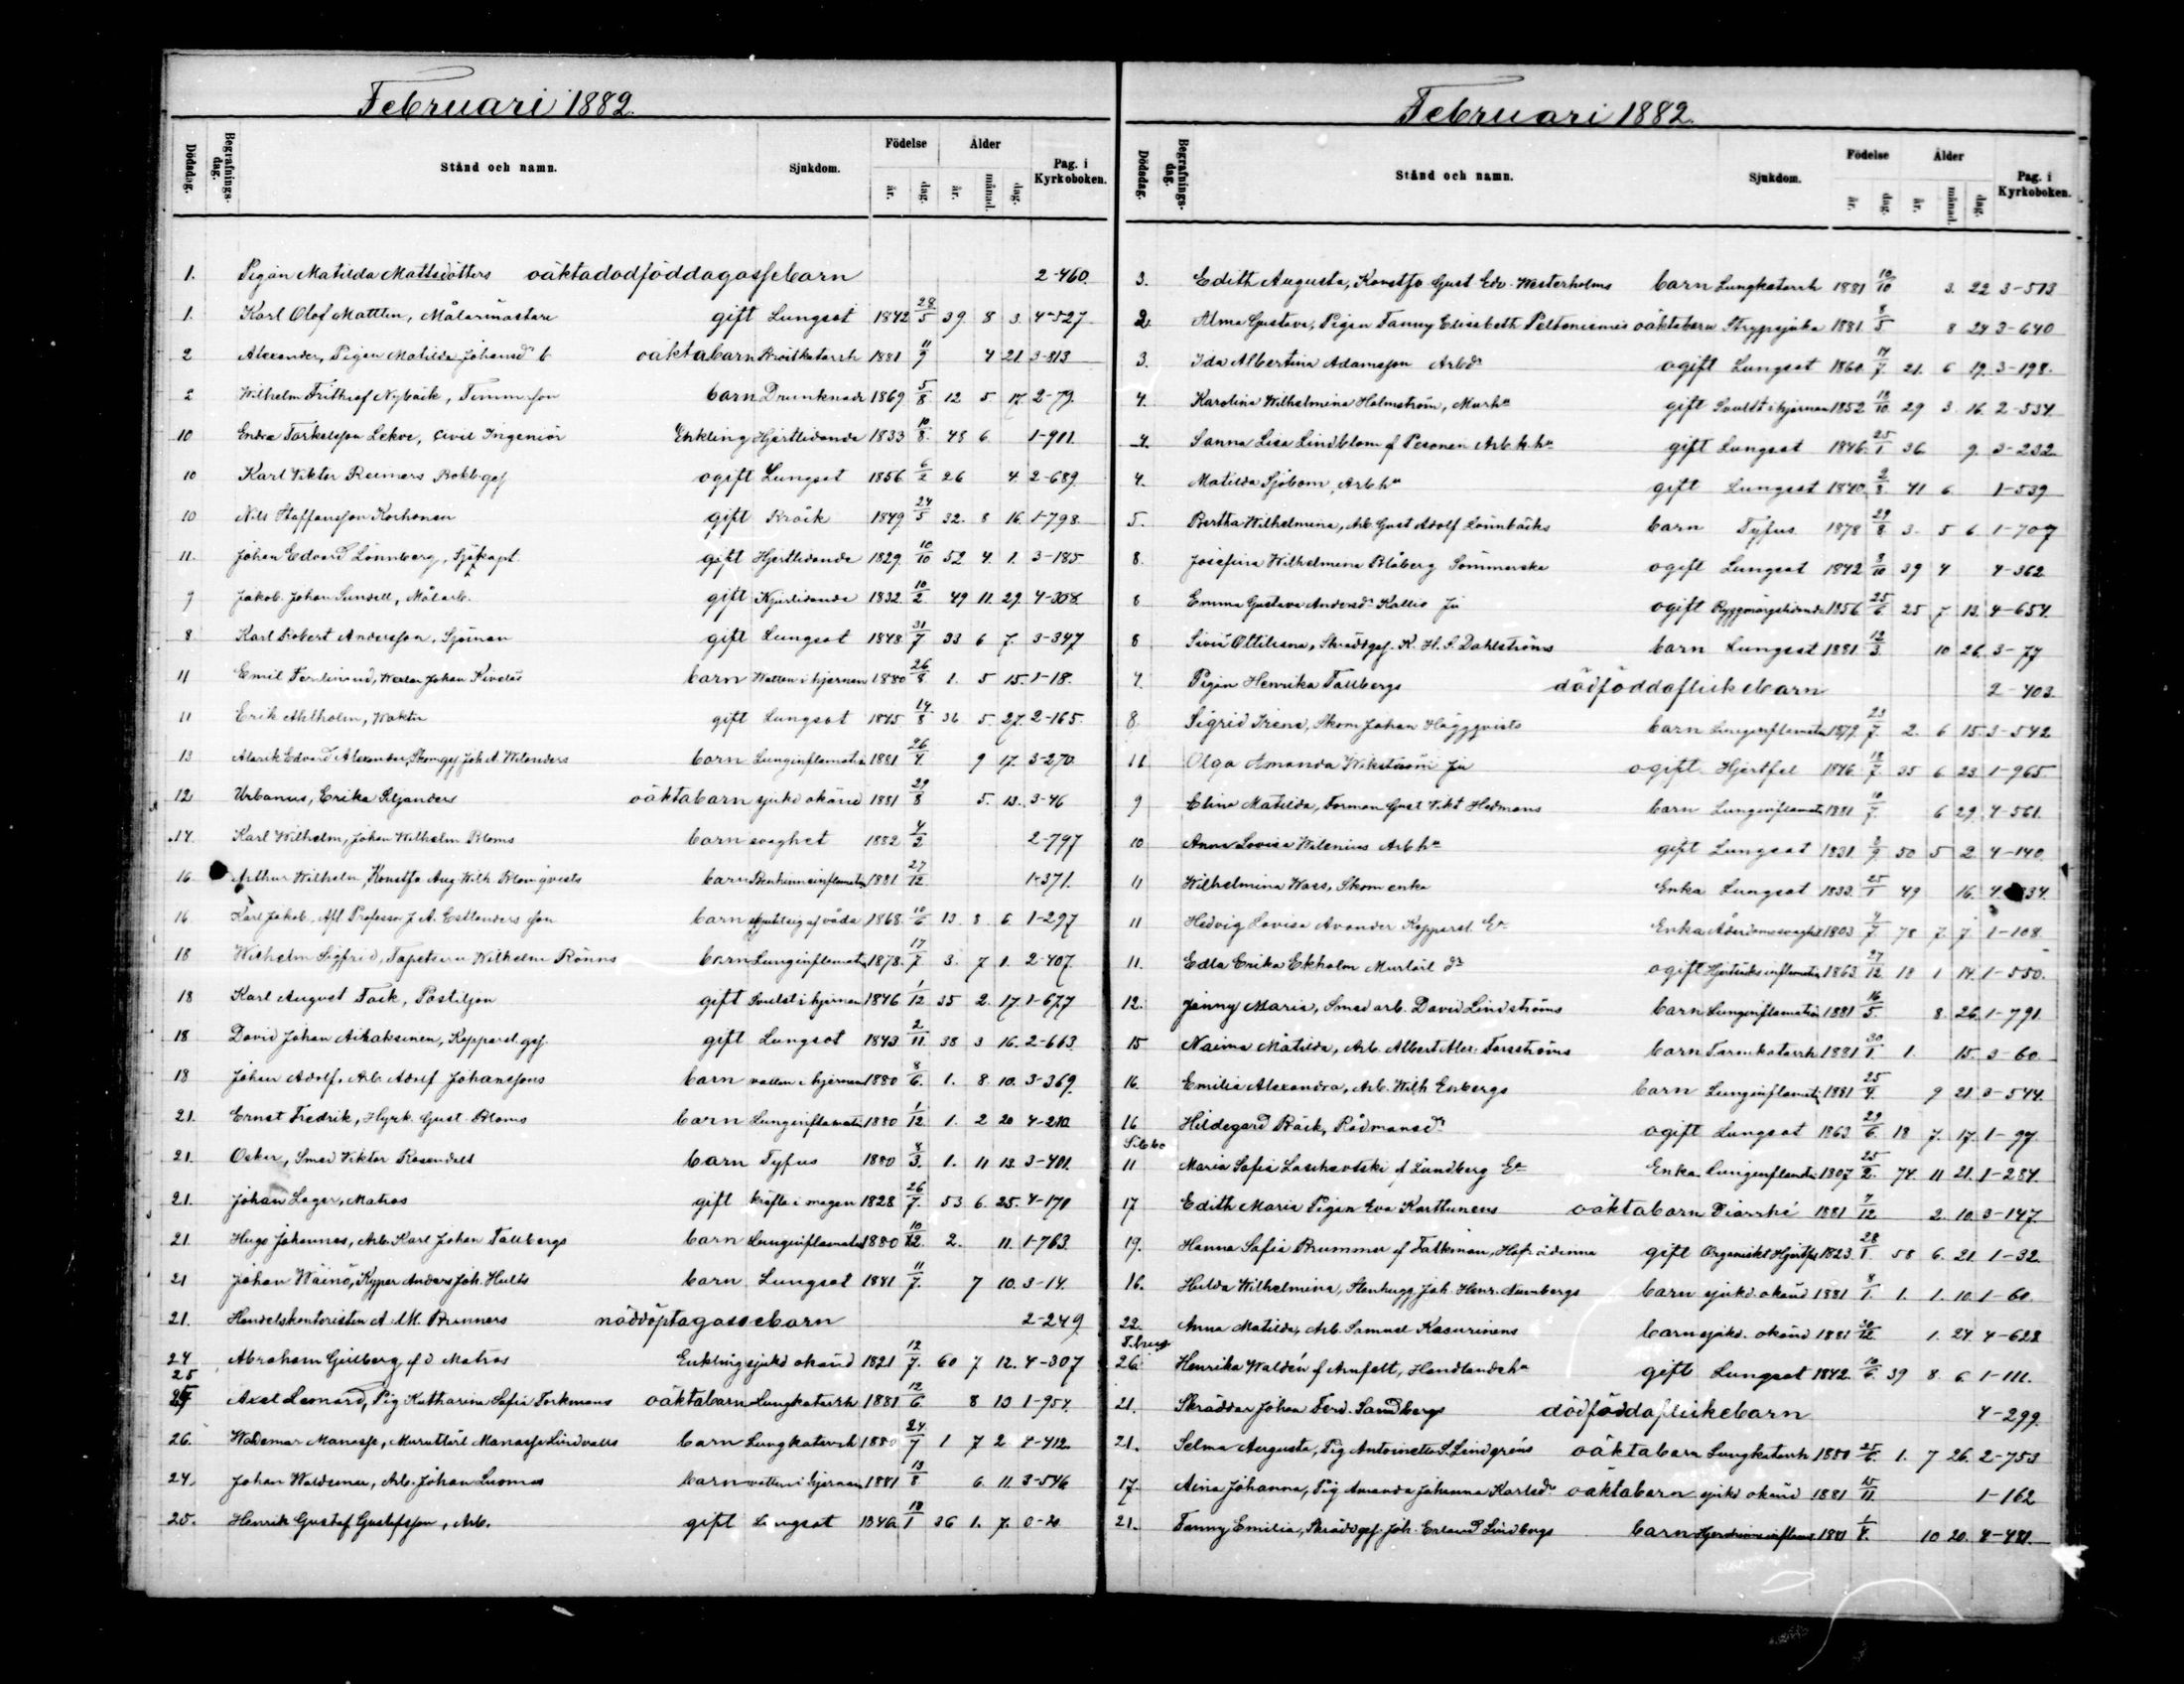 Februari 1882.
Dödsdag. Begrafningsdag. Stånd och namn. Sjukdom. Födelse år. dag. Ålder år. månad. dag. Pag. i Kyrkoboken.
1. Pigan Matilda Mattsdotters oäktadödföddagossebarn 2-460
1. Karl Olof Mattlin, Målarmästare gift Lungsot 1842 28/5 39 8 3. 4-527
2 Alexander, Pigan Matilda Johansdr oäktabarn 1881 11/9 4 21 3-813
2 Wilhelm Frithiof Nybäck, Timm. son barn Drunknade 1869 5/8 12 5 17. 2-79.
10 Endre Torkelsson Lekve, Civil Ingeniör Enkling Hjertlidande 1833 10/8. 48 6. 1-911
10 Karl Viktor Reimers Bokb.ges ogift Lungsot 1856 6/2 26 4. 2-689.
10 Nils Staffansson Korhonen gift Bråck 1849 24/5 32. 8 16. 1-798.
11. Johan Edvard Lönnberg, Sjökapt. gift Hjertlidande 1829. 10/10 52 4. 1. 3-185
9 Jakob Johan Sundell, Målarb. gift Hjertlidande 1832. 10/2 49 11. 29. 4-308.
8 Karl Robert Andersson, Sjöman gift Lungsot 1848 31/7 33 6 7. 3-347
11 Emil Ferdinand, Johan Kiveläs barn Watten i hjernan 1880 26/8 1. 5 15. 1-18.
11 Erik Ahlholm, Waktm gift Lungsot 1845 14/8 36 5. 27. 2-165.
13 Alarik Edvard Alexander, Skomges Joh. A. Wilanders barn Lunginflamation 1881 26/4. 9 17. 3-270.
12 Urbanus, Erika Seljanders oäktabarn sjukd okänd 1881 29/8 5. 13. 3-46
14 Karl Wilhelm, Johan Wilhelm Bloms barn svaghet 1882 4/2 2-797
16 Arthur Wilhelm, Konstfo Aug. Wilh. Blomqvists barn 1881 27/12. 1-371.
16. Karl Jakob, Afl. Professor J. A. Estlanders son barn skjutit sig af våda 1868. 10/6 13. 8. 6. 1-297
18 Wilhelm Sigfrid, Tapetserar Wilhelm Rönns barn Lunginflamat. 1878. 17/7 3. 7 1. 2-407.
18 Karl August Fack, Postiljon gift Svulst i hjernan 1846 1/12 35 2. 17. 1-677
18 David Johan Aikaksinen, Kopparsl.ges. gift Lungsot 1843. 2/11. 38 3 16. 2-663.
18 Johan Adolf, Arb. Adolf Johanssons barn vatten i hjernan 1880 8/6. 1. 8. 10. 3-369.
21. Ernst Fredrik, Hyrk. Gust. Bloms barn Lunginflamation 1880 1/12. 1. 2 20 4-210.
21. Oskar, Smed Viktor Rosendals barn Tyfus 1880 8/3. 1. 11 13. 3-401.
21. Johan Lager, Matros gift kräfta i magen 1828 26/7. 53 6. 25. 4-171
21. Hugo Johannes, Arb. Karl Johan Tallbergs barn Lunginflamation 1880 10/12. 2. 11. 1-763.
21 Johan Wäinö, Kypar Anders Joh. Hults barn Lungsot 1881 11/7. 7 10. 3-14.
21. Handelskontoristen A. M. Brunners nöddöptagossebarn 2-249
24 Abraham Gillberg, f. d. Matros Enkling sjukd okänd 1821 12/7. 60 7 12. 4-307
25 Axel Leonard, Pig Katharina Sofia Torkmans oäktabarn Lungkatarrh 1881 12/6. 8 13 1-954.
26. Waldemar Manasse, Muruttlärl Manasse Lindvalls barn Lungkatarrh 1880 24/7 1 7 2 4-412.
24. Johan Waldemar, Arb. Johan Luomas barn vatten i hjernan 1881 13/8 6. 11. 3-546
25. Henrik Gustaf Gustafsson, Arb. gift Lungsot 1846. 18/1 36 1. 7. 0-20.
Februari 1882.
Dödsdag. Begrafningsdag. Stånd och namn. Sjukdom. Födelse år. dag. Ålder år. månad. dag. Pag. i Kyrkoboken.
3. Edith Augusta, Konstfo Gust. Edv. Westerholms barn Lungkatarrh 1881 10/10 3. 22 3-513
2. Alma Gustava, Pigan Fanny Elisabeth Peltoniemis oäktabarn Strypsjuka 1881. 8/5 8 24 3-640
3. Ida Albertina Adamsson Arbdr ogift Lungsot 1860. 14/7 21. 6 19. 3-198.
4. Karolina Wilhelmina Holmström, Murha gift Svulst i hjernan 1852 18/10 29 3. 16. 2-534.
4. Sanna Lisa Lindblom f. Pesonen Arb.k.ha gift Lungsot 1846. 25/1 36 9. 3-232
4. Matilda Sjöbom, Arb.ha gift Lungsot 1840. 2/8 41 6. 1-539
5. Bertha Wilhelmina, Arb. Gust Adolf Lönnbäcks barn Tyfus 1878 29/8 3. 5 6. 1-707
8. Josefina Wilhelmina Blåberg Sömmerska ogift Lungsot 1842 8/10 39 4 4-362
8 Emma Gustava Andersdr Kallio ju ogift Ryggmärgslidande 1856 25/6. 25 7. 13. 4-654.
8 Siviä Ottiliana, Skräddges. K. H. S. Dahlströms barn Lungsot 1881. 12/3. 10 26. 3-77
7. Pigan Henrika Tallbergs dödföddaflickebarn 2-403.
8. Sigrid Irene, Skom Johan Häggqvists barn Lunginflamation 1879. 23/7. 2. 6 15. 3-542.
11 Olga Amanda Wikström ju ogift Hjertfel 1846. 18/7. 35 6. 23. 1-965.
9 Elina Matilda, Forman Gust. Vikt. Hedmans barn Lunginflamation 1881 10/7. 6 29. 4-561.
10 Anna Lovisa Wilenius Arb.ha gift Lungsot 1831. 8/9. 50 5 2. 4-140.
11 Wilhelmina Wass, Skom enka Enka Lungsot 1833. 25/1 49 16. 4. 34.
11 Hedvig Lovisa Avander Kopparsl. Ea Enka Ålderdomssvaghet 1803 4/7. 78 7. 7. 1-108.
11. Edla Erika Ekholm Murlärl dr ogift Hjertsäcksinflamation 1863. 27/12 18 1 14. 1-550.
12. Jenny Maria, Smed arb. David Lindströms barn Lunginflamation 1881 16/5 8. 26. 1-791.
15 Naima Matilda, Arb. Albert Alex. Forsströms barn Tarmkatarrh 1881 30/1. 1. 15. 3-60.
16. Emilia Alexandra, Arb. Wilh Enbergs barn Lunginflamat. 1881 25/4. 9 21. 3-544.
16 Hildegard Bäck, Rådmansdr ogift Lungsot 1863. 29/6. 18 7. 17. 1-97.
Sibbo
11 Maria Sofia f. Lundberg Ea Enka Lunginflamation 1807 25/2. 74. 11 21. 1-284.
17 Edith Maria Pigan Eva Karttunens oäktabarn Diarrhé 1881 7/12 2. 10. 3-147.
19. Hanna Sofia Brummer f. Falkman, Hofrådinna gift Organiskt Hjertfel 1823. 28/1. 58 6. 21. 1-32.
16. Hulda Wilhelmina, Stenhugg. Joh. Henr. Numbergs barn sjukd. okänd 1881 8/1. 1. 1. 10. 1-60.
22. Anna Matilda, Arb. Samuel Kasurinens barn sjukd. okänd 1881 30/12. 1. 24. 4-628
26. Henrika Waldén f. Arnfelt, Handlandeha gift Lungsot 1842. 10/6. 39 8. 6. 1-111.
21. Skräddar Johan Ferd. Sandbergs dödföddaflickebarn 4-299.
21. Selma Augusta, Pig Antoinette S. Lindgréns oäktabarn Lungkatarrh 1880 25/6. 1. 7 26. 2-753
17. Aina Johanna, Pig Amanda Johanna Karlsdr oäktabarn sjukd okänd 1881 15/11. 1-162
21. Fanny Emilia, Skräddges. Joh. Erland Lindbergs barn 1881 1/4. 10 20. 4-481.